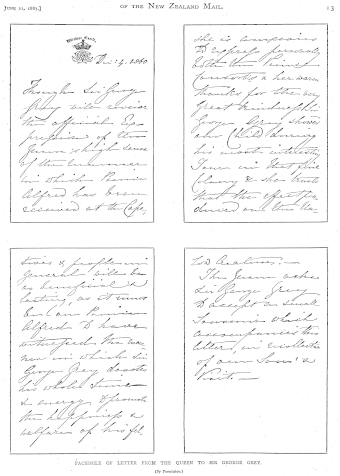 JUNE 21, 1889.]
OF THE NEW ZEALAND MAIL.
13
Windsor Castle.
Dec: 4. 1860
Though Sir George
Grey will receive
the official Ex-
pression of the
Queen's high sense
of the manner
in which Prince
Alfred has been
received at the Cape,
she is anxious
to express personally
both her Prince
Consort's & her warm
thanks for the very
great kindness Sir
George Grey showed
our Child during
his most interesting
Tour in that fine
Colony & she trusts
that the effect pro-
duced on the Na-
tives & people in
general will be
as beneficial &
lasting, as it must
be on Prince
Alfred to have
witnessed the man-
ner in which Sir
George Grey devotes
his whole time
& energy to promote
the happiness &
welfare of his fel-
low Creatures.—
The Queen asks
Sir George Grey
to accept a small
Souvenir which
accompanies this
letter, in recollection
of our Son's
Visit.—
FACSIMILE OF LETTER FROM THE QUEEN TO SIR GEORGE GREY.
(By Permission.)